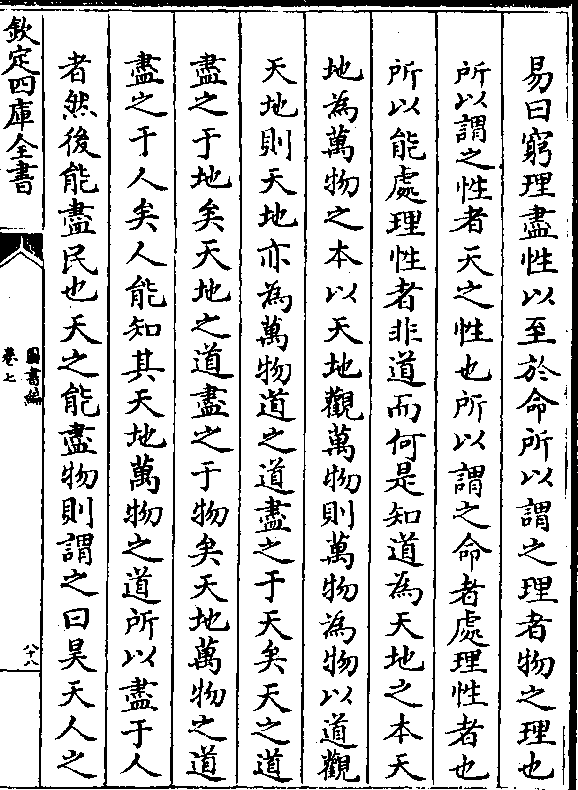 易曰窮理盡性以至於命所以謂之理者物之理也
所以謂之性者天之性也所以謂之命者處理性者也
所以能處理性者非道而何是知道為天地之本天
地為萬物之本以天地觀萬物則萬物為物以道觀
天地則天地亦為萬物道之道盡之于天矣天之道
盡之于地矣天地之道盡之于物矣天地萬物之道
盡之于人矣人能知其天地萬物之道所以盡于人
者然後能盡民也天之能盡物則謂之曰昊天人之
欽定四庫全書
圖書編
卷七
八十八